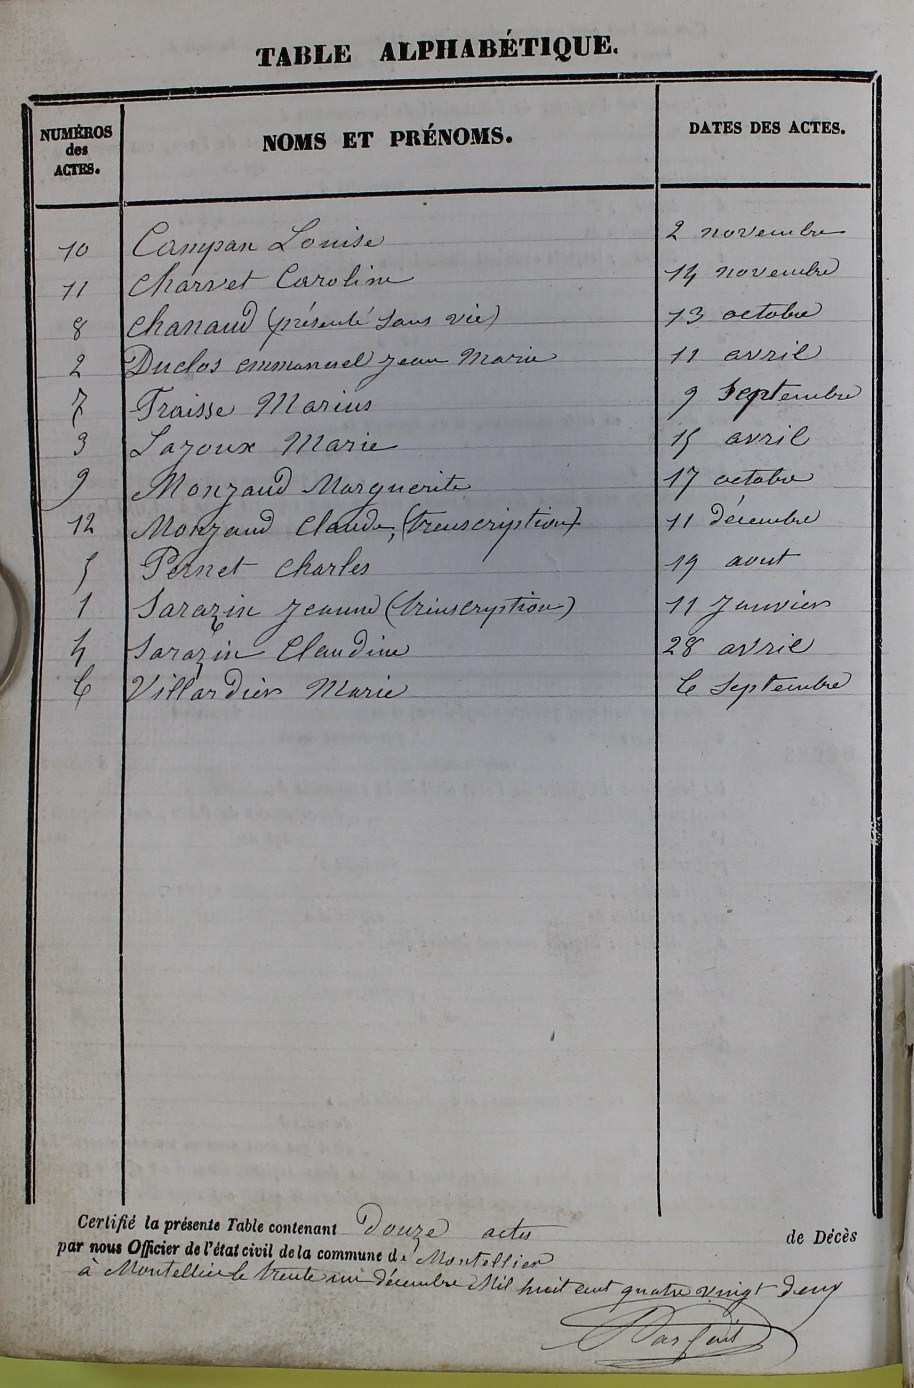 TABLE ALPHABÉTIQUE.
NUMÉROS des ACTES. NOMS ET PRÉNOMS. DATES DES ACTES.
10 Campan Louise 2 novembre
11 Charvet Caroline 14 novembre
8 Chanaud (présenté sans vie) 13 octobre
2 Duclos emmanuel jean Marie 11 avril
7 Fraisse Marius 9 Septembre
3 Lazoux Marie 15 avril
9 Monzaud Marguerite 17 octobre
12 Monzaud Claude, (transcription) 11 décembre
5 Pernet Charles 19 aout
1 Sarazin Jeanne (trinscryption) 11 Janvier
4 Sarazin Claudine 28 avril
6 Villardier Marie 6 Septembre
Certifié la présente Table contenant Douze actes de Décès
par nous Officier de l'état civil de la commune de Montellier
à Montellier le trente un décembre Mil huit cent quatre vingt deux